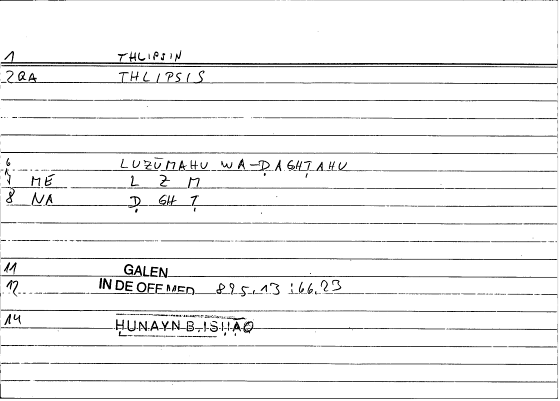 1 THLIPSIN
2QA THLIPSIS
6 LUZŪMAHU WA-ḌAGHṬAHU
7 ME L Z M
8 NA Ḍ GH Ṭ
11 GALEN
12 IN DE OFF MED 895,13 :66,23
14 HUNAYN B. ISḤĀQ